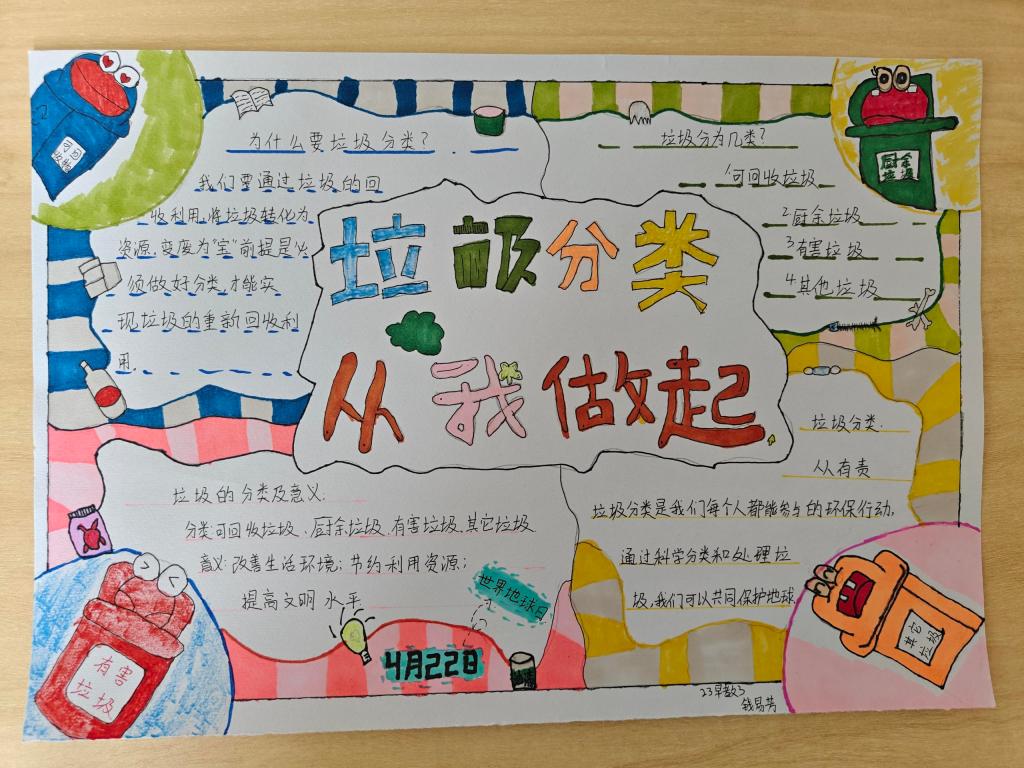 可回
收物
为什么要垃圾分类?
我们要通过垃圾的回
收利用,将垃圾转化为
资源,变废为"宝"前提是必
须做好分类,才能实
现垃圾的重新回收利
用。
垃圾分为几类?
1可回收垃圾
2厨余垃圾
3有害垃圾
4其他垃圾
厨余
垃圾
垃圾分类
从我做起
垃圾的分类及意义:
分类:可回收垃圾、厨余垃圾、有害垃圾、其它垃圾
意义:改善生活环境;节约利用资源;
提高文明水平
垃圾分类:
从有责
垃圾分类是我们每个人都能参与的环保行动,
通过科学分类和处理垃
圾,我们可以共同保护地球
有害
垃圾
世界地球日
4月22日
其它
垃圾
23早教3
钱易芳